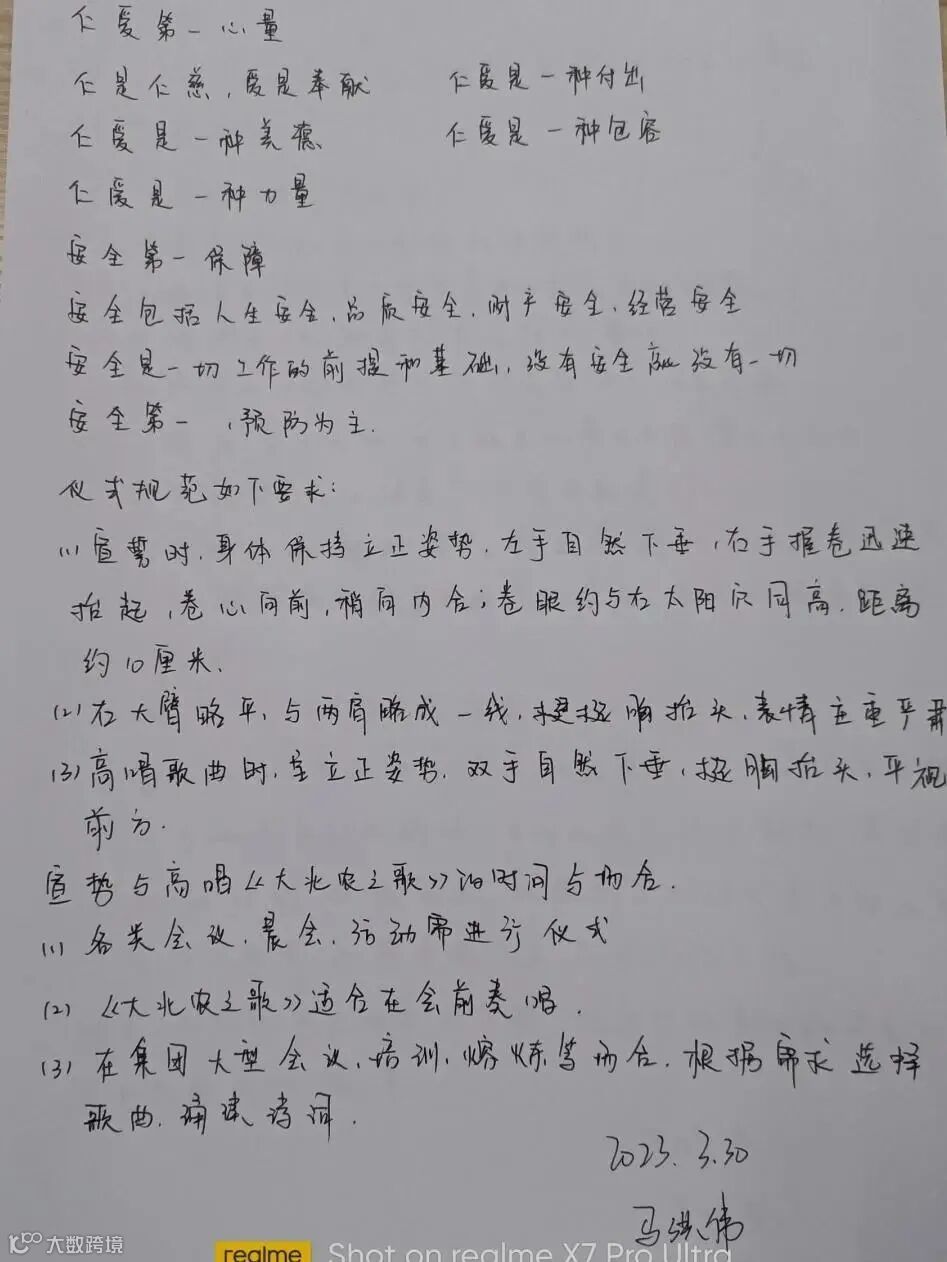 仁爱第一心量
仁是仁慈,爱是奉献 仁爱是一种付出
仁爱是一种美德 仁爱是一种包容
仁爱是一种力量
安全第一保障
安全包括人生安全,品质安全,财产安全,经营安全
安全是一切工作的前提和基础,没有安全就没有一切
安全第一,预防为主.
仪式规范如下要求:
(1)宣誓时,身体保持立正姿势,左手自然下垂,右手握卷迅速
抬起,卷心向前,稍向内合;卷眼约与右太阳穴同高,距离
约10厘米.
(2)右大臂略平,与两肩略成一线,挺胸抬头,表情庄重严肃
(3)高唱歌曲时,呈立正姿势,双手自然下垂,挺胸抬头,平视
前方.
宣势与高唱《大北农之歌》的时间与场合.
(1)各类会议,晨会,活动需进行仪式
(2)《大北农之歌》适合在会前奏唱.
(3)在集团大型会议,培训,熔炼等场合,根据需求选择
歌曲,诵读诗词.
2023.3.30
马洪伟
大数跨境
realme Shot on realme X7 Pro Ultra